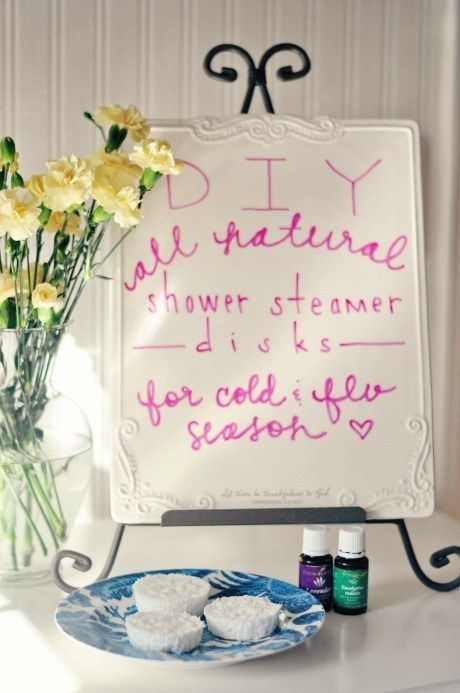 DIY
all natural
shower steamer
disks
for cold & flu
season ♡
Let there be thankfulness to God
EPHESIANS 5:4 NET
Lavender
Eucalyptus
radiata